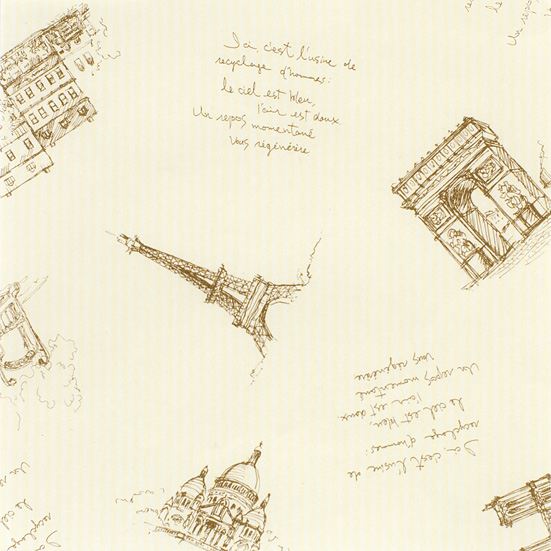 Ici, c'est l'usine de
recyclage d'hommes:
le ciel est bleu,
l'air est doux.
Un repos momentané
vous régénère
Ici, c'est l'usine de
recyclage d'hommes:
le ciel est bleu,
l'air est doux.
Un repos momentané
vous régénère
Un repos
le ciel
recyclage